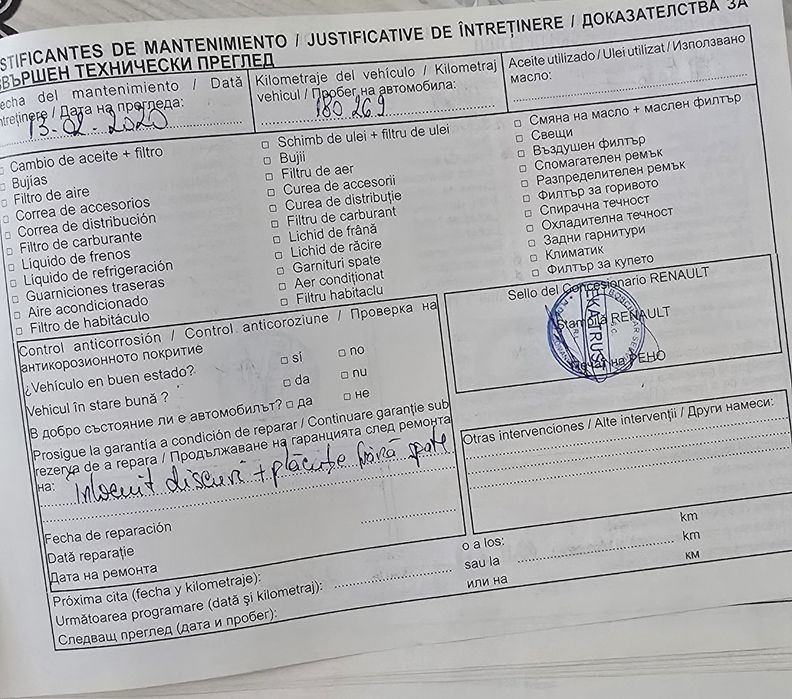 STIFICANTES DE MANTENIMIENTO / JUSTIFICATIVE DE ÎNTREȚINERE / ДОКАЗАТЕЛСТВА ЗА
ВЪРШЕН ТЕХНИЧЕСКИ ПРЕГЛЕД
echa del mantenimiento / Dată
ntreținere / Дата на прегледа:
13-02-2020
Kilometraje del vehículo / Kilometraj
vehicul / Пробег на автомобила:
180 269
Aceite utilizado / Ulei utilizat / Използвано
масло:
□ Cambio de aceite + filtro
□ Bujías
□ Filtro de aire
□ Correa de accesorios
□ Correa de distribución
□ Filtro de carburante
□ Líquido de frenos
□ Líquido de refrigeración
□ Guarniciones traseras
□ Aire acondicionado
□ Filtro de habitáculo
□ Schimb de ulei + filtru de ulei
□ Bujii
□ Filtru de aer
□ Curea de accesorii
□ Curea de distribuție
□ Filtru de carburant
□ Lichid de frână
□ Lichid de răcire
□ Garnituri spate
□ Aer condiționat
□ Filtru habitaclu
□ Смяна на масло + маслен филтър
□ Свещи
□ Въздушен филтър
□ Спомагателен ремък
□ Разпределителен ремък
□ Филтър за горивото
□ Спирачна течност
□ Охладителна течност
□ Задни гарнитури
□ Климатик
□ Филтър за купето
Control anticorrosión / Control anticoroziune / Проверка на
антикорозионното покритие
¿Vehículo en buen estado? □ sí □ no
Vehicul în stare bună ? □ da □ nu
В добро състояние ли е автомобилът? □ да □ не
Prosigue la garantía a condición de reparar / Continuare garanție sub
rezerva de a repara / Продължаване на гаранцията след ремонта
на: înlocuit discuri + plăcuțe frână spate
Fecha de reparación
Dată reparație
Дата на ремонта
Sello del Concesionario RENAULT
Stampilă RENAULT
Печат на РЕНО
Otras intervenciones / Alte intervenții / Други намеси:
Próxima cita (fecha y kilometraje): o a los: km
Următoarea programare (dată şi kilometraj): sau la km
Следващ преглед (дата и пробег): или на км